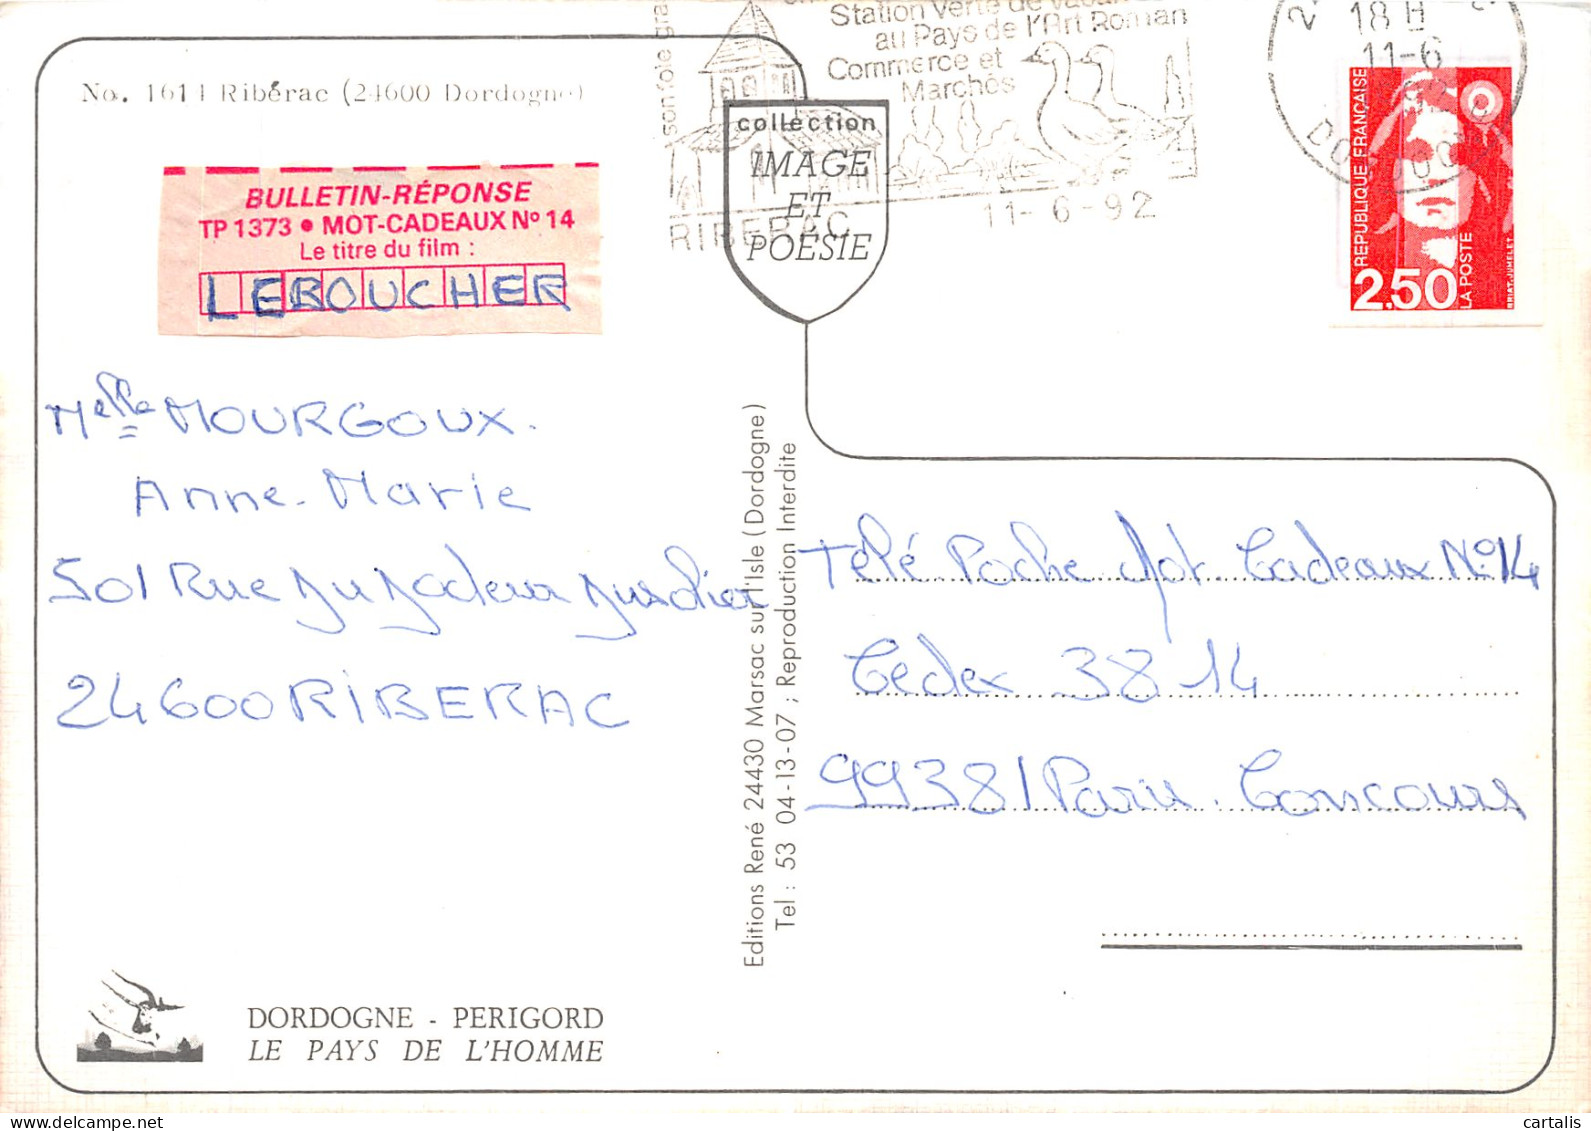 No. 1614 Ribérac (24600 Dordogne)
BULLETIN-RÉPONSE
TP 1373 • MOT-CADEAUX Nº 14
Le titre du film :
LEBOUCHER
Melle MOURGOUX.
Anne-Marie
501 Rue du
24600 RIBERAC
DORDOGNE - PERIGORD
LE PAYS DE L'HOMME
son foie gra
Station Verte de Vacan
au Pays de l'Art Roman
Commerce et
Marchés
RIBERAC
11-6-92
collection
IMAGE
ET
POÉSIE
Editions René 24430 Marsac sur l'Isle (Dordogne)
Tel : 53 04-13-07 ; Reproduction Interdite
18 H
11-6
REPUBLIQUE FRANÇAISE
2,50
LA POSTE
BRIAT-JUMELET
Télé Poche Mot Cadeaux Nº14
Cedex 3814
99381 Paris Concours
cartalis